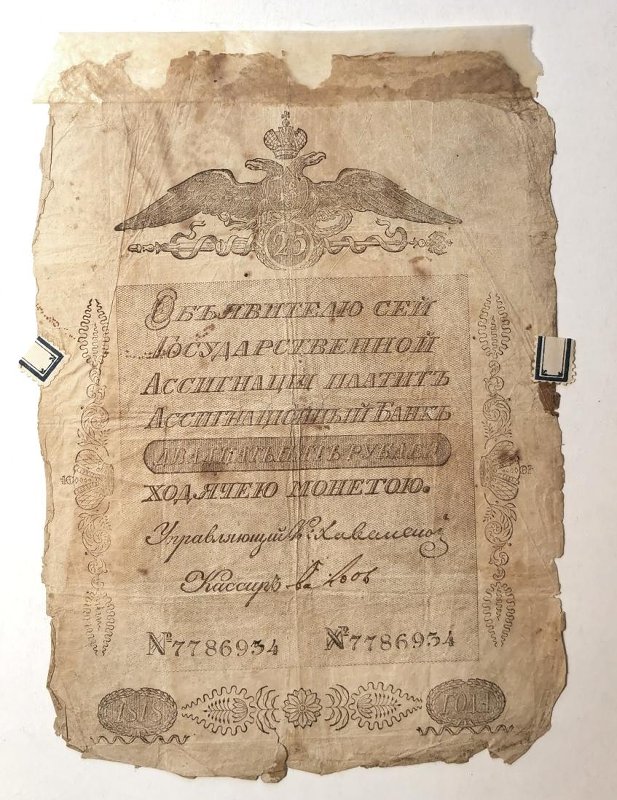 25
Объявителю сей
Государственной
Ассигнацiи платитъ
Ассигнацiонный Банкъ
двадцать пять рублей
ходячею монетою.
Управляющiй
Кассиръ
№ 7786934 № 7786934
1818